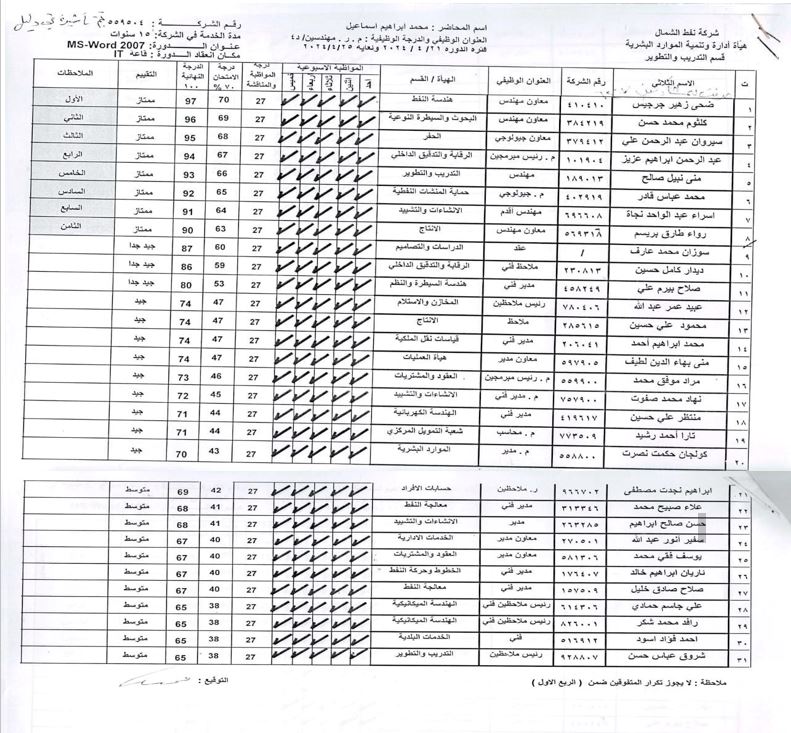 شركة نفط الشمال
هيأة أدارة وتنمية الموارد البشرية
قسم التدريب والتطوير
اسم المحاضر : محمد ابراهيم اسماعيل
العنوان الوظيفي والدرجة الوظيفية : م . ر . مهندسين/ د٤
فتره الدوره ٤/٢١ / ٢٠٢٤ ونهايه ٢٠٢٤/٤/٢٥
رقم الشركة : ٥٥٩٥٠٤
مدة الخدمة في الشركة: ١٥ سنوات
عنوان الدورة: MS-Word 2007
مكان انعقاد الدورة : قاعه IT
ت | الاسم الثلاثي | رقم الشركة | العنوان الوظيفي | الهيأة / القسم | المواظبة الاسبوعية | احد | اثنين | ثلاثاء | اربعاء | خميس | درجة المواظبة والمناقشة | درجة الامتحان ٧٠ % | الدرجة النهائية ١٠٠ | التقييم | الملاحظات
١ | ضحى زهير جرجيس | ٤١٠٤١٠ | معاون مهندس | هندسة النفط | 27 | 70 | 97 | ممتاز | الأول
٢ | كلثوم محمد حسن | ٣٨٤٢١٩ | معاون مهندس | البحوث والسيطرة النوعية | 27 | 69 | 96 | ممتاز | الثاني
٣ | سيروان عبد الرحمن علي | ٣٧٩٤١٢ | معاون جيولوجي | الحفر | 27 | 68 | 95 | ممتاز | الثالث
٤ | عبد الرحمن ابراهيم عزيز | ١٠١٩٠٤ | م . رئيس مبرمجين | الرقابة والتدقيق الداخلي | 27 | 67 | 94 | ممتاز | الرابع
٥ | منى نبيل صالح | ١٨٩٠١٣ | مهندس | التدريب والتطوير | 27 | 66 | 93 | ممتاز | الخامس
٦ | محمد عباس قادر | ٤٠٢٩١٩ | م . جيولوجي | حماية المنشات النفطية | 27 | 65 | 92 | ممتاز | السادس
٧ | اسراء عبد الواحد نجاة | ٦٩٦٦٠٨ | مهندس أقدم | الانشاءات والتشييد | 27 | 64 | 91 | ممتاز | السابع
٨ | رواء طارق بريسم | ٥٦٩٣١٨ | معاون مهندس | الانتاج | 27 | 63 | 90 | ممتاز | الثامن
٩ | سوزان محمد عارف | / | عقد | الدراسات والتصاميم | 27 | 60 | 87 | جيد جدا
١٠ | ديدار كامل حسين | ٢٣٠٨١٣ | ملاحظ فني | الرقابة والتدقيق الداخلي | 27 | 59 | 86 | جيد جدا
١١ | صلاح بيرم علي | ٤٥٨٢٤٩ | مدير فني | هندسة السيطرة والنظم | 27 | 53 | 80 | جيد جدا
١٢ | عبيد عمر عبد الله | ٧٨٠٤٠٦ | رئيس ملاحظين | المخازن والاستلام | 27 | 47 | 74 | جيد
١٣ | محمود علي حسين | ٢٨٥٦١٥ | ملاحظ | الانتاج | 27 | 47 | 74 | جيد
١٤ | محمد ابراهيم أحمد | ٢٠٦٠٤١ | مدير فني | قياسات نقل الملكية | 27 | 47 | 74 | جيد
١٥ | منى بهاء الدين لطيف | ٥٩٧٩٠٥ | معاون مدير | هيأة العمليات | 27 | 47 | 74 | جيد
١٦ | مراد موفق محمد | ٥٥٩٩٠٠ | م . رئيس مبرمجين | العقود والمشتريات | 27 | 46 | 73 | جيد
١٧ | نهاد محمد صفوت | ٧٥٧٩٠٠ | م . مدير فني | الانشاءات والتشييد | 27 | 45 | 72 | جيد
١٨ | منتظر علي حسين | ٤١٩٦١٧ | مدير فني | الهندسة الكهربائية | 27 | 44 | 71 | جيد
١٩ | تارا أحمد رشيد | ٧٧٣٥٠٩ | م . محاسب | شعبة التمويل المركزي | 27 | 44 | 71 | جيد
٢٠ | كولجان حكمت نصرت | ٥٥٨٨٠٠ | م . مدير | الموارد البشرية | 27 | 43 | 70 | جيد
٢١ | ابراهيم نجدت مصطفى | ٩٦٦٧٠٢ | ر. ملاحظين | حسابات الأفراد | 27 | 42 | 69 | متوسط
٢٢ | علاء صبيح محمد | ٣١٣٣٤٦ | مدير فني | معالجة النفط | 27 | 41 | 68 | متوسط
٢٣ | حسن صالح ابراهيم | ٢٦٣٢٨٥ | مدير | الانشاءات والتشييد | 27 | 41 | 68 | متوسط
٢٤ | سفير انور عبد الله | ٢٧٠٥٠١ | معاون مدير | الخدمات الادارية | 27 | 40 | 67 | متوسط
٢٥ | يوسف فقي محمد | ٥٨١٣٠٦ | معاون مدير | العقود والمشتريات | 27 | 40 | 67 | متوسط
٢٦ | ناريان ابراهيم خالد | ١٧٦٤٠٧ | مدير فني | الخطوط وحركة النفط | 27 | 40 | 67 | متوسط
٢٧ | صلاح صادق خليل | ١٥٧٥٠٩ | مدير فني | معالجة النفط | 27 | 40 | 67 | متوسط
٢٨ | علي جاسم حمادي | ٦١٤٣٠٦ | رئيس ملاحظين فني | الهندسة الميكانيكية | 27 | 38 | 65 | متوسط
٢٩ | رافد محمد شكر | ٨٢٦٠٠١ | رئيس ملاحظين فني | الهندسة الميكانيكية | 27 | 38 | 65 | متوسط
٣٠ | احمد فؤاد اسود | ٥١٦٩١٢ | فني | الخدمات البلدية | 27 | 38 | 65 | متوسط
٣١ | شروق عباس حسن | ٩٢٨٨٠٧ | رئيس ملاحظين | التدريب والتطوير | 27 | 38 | 65 | متوسط
ملاحظة : لا يجوز تكرار المتفوقين ضمن ( الربع الاول )
التوقيع :